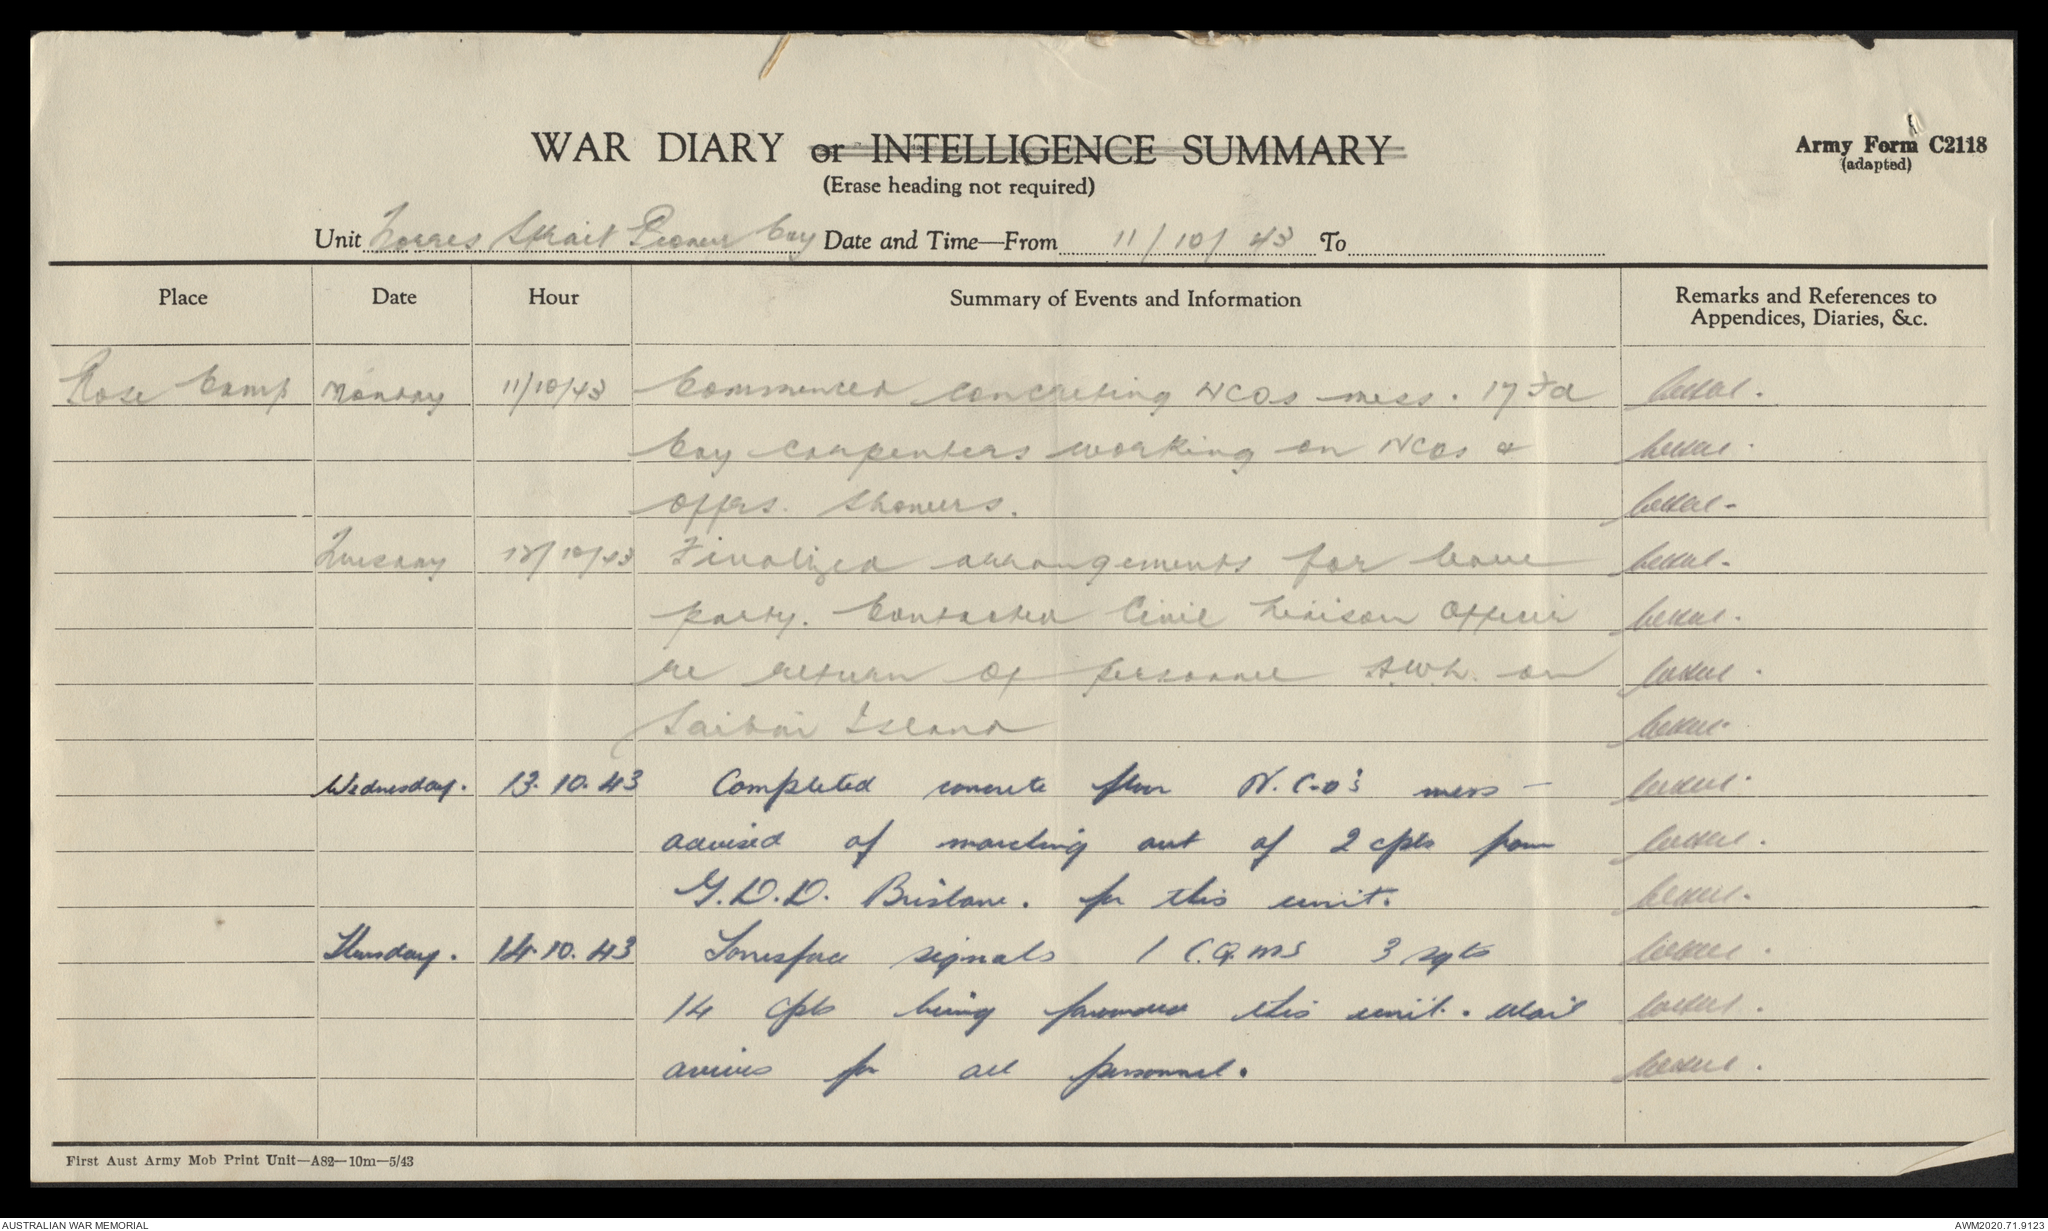 WAR DIARY or INTELLIGENCE SUMMARY
(Erase heading not required)
Army Form C2118
(adapted)
Unit Torres Strait Pioneer Coy Date and Time—From 11/10/43 To
Place Date Hour Summary of Events and Information Remarks and References to Appendices, Diaries, &c.
Rose Camp Monday 11/10/43 Commenced concreting NCOs mess. 17 Fd
Coy carpenters working on NCOs &
offrs. showers.
Tuesday 12/10/43 Finalized arrangements for leave
party. Contacted Civil Liaison Officer
re return of personnel A.W.L. on
Saibai Island
Wednesday. 13.10.43 Completed concrete floor N.C.O's mess -
advised of marching out of 2 cpls from
G.D.D. Brisbane. for this unit.
Thursday. 14.10.43 Torresforce signals 1 C.Q.M.S 3 sgts
14 cpls being this unit. Mail
arrives for all personnel.
First Aust Army Mob Print Unit—A82—10m—5/43
AUSTRALIAN WAR MEMORIAL
AWM2020.71.9123